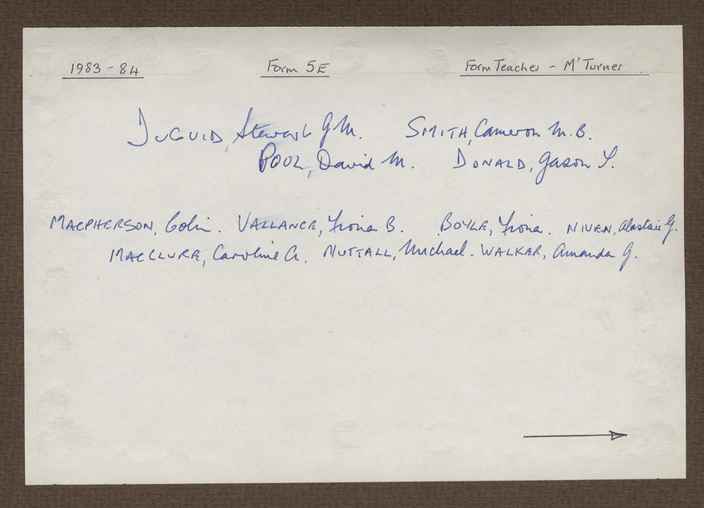 1983-84 Form 5E Form Teacher - Mr Turner
DUGUID, Stewart G M. SMITH, Cameron M. B.
POOL, David M. DONALD, Jason
MACPHERSON, Colin. VALLANCE, Fiona B. BOYLE, Fiona. NIVEN, Alastair G.
MACCLURE, Caroline A. NUTTALL, Michael. WALKER, Amanda G.